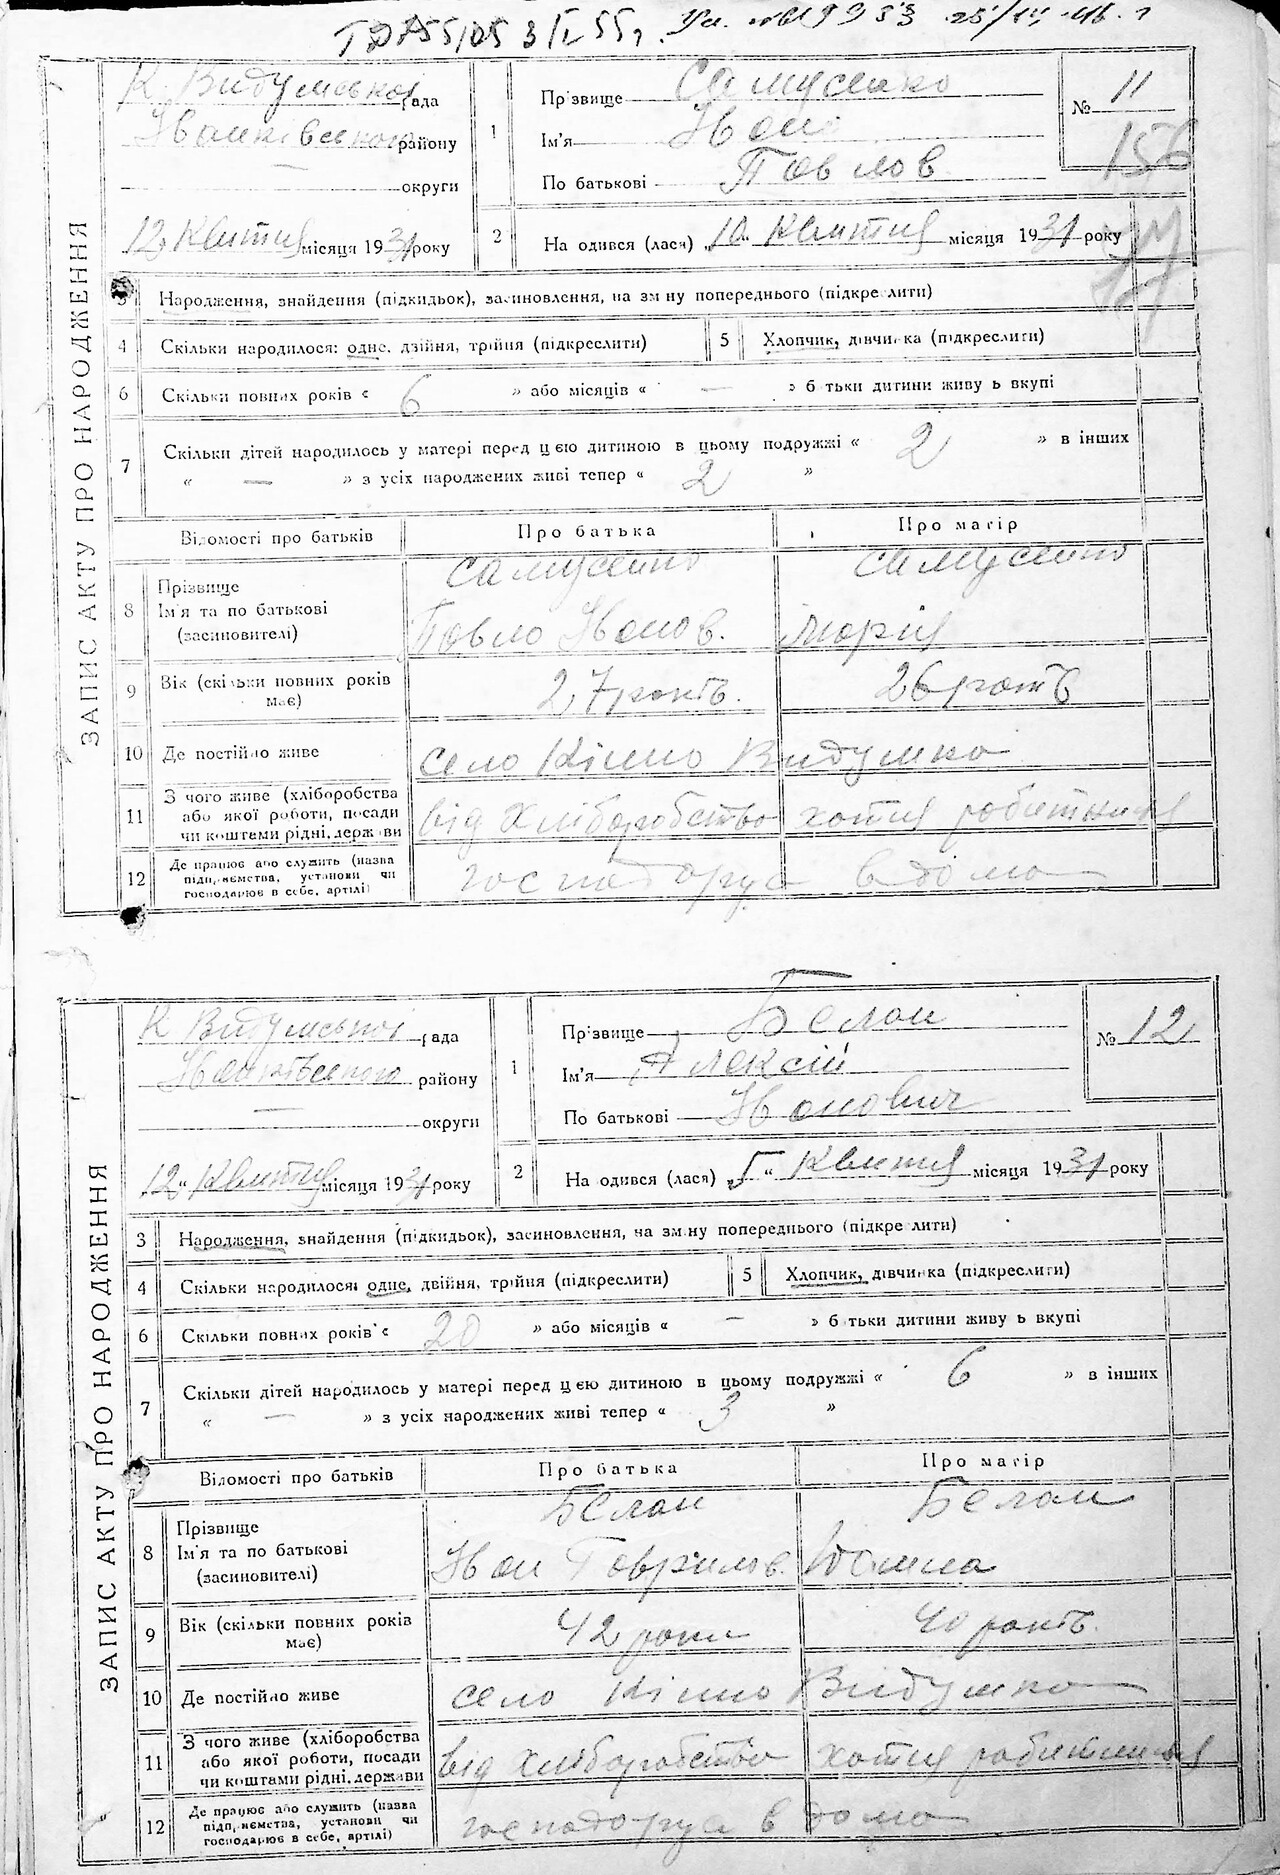 3/V 55 г.
К. Видумської рада
Іванківського району
— округи
„12„ Квітня місяця 1931 року
1
Прізвище Самусенко
Ім'я Іван
По батькові Павлов
№ 11
156
2
На одився (лася) „10“ Квітня місяця 1931 року
ЗАПИС АКТУ ПРО НАРОДЖЕННЯ
3 Народження, знайдення (підкидьок), засиновлення, на зміну попереднього (підкреслити)
4 Скільки народилося: одне, двійня, трійня (підкреслити) 5 Хлопчик, дівчинка (підкреслити)
6 Скільки повних років « 6 » або місяців « — » батьки дитини живуть вкупі
7 Скільки дітей народилось у матері перед цією дитиною в цьому подружжі « 2 » в інших
« — » з усіх народжених живі тепер « 2 »
Відомості про батьків Про батька Про матір
8 Прізвище Самусенко Самусенко
Ім'я та по батькові Павло Іванов. Марія
(засиновителі)
9 Вік (скільки повних років 27 років. 26 років
має)
10 Де постійно живе село Кінно Видумка
11 З чого живе (хліборобства
або якої роботи, посади від хліборобства хатня робітниця
чи коштами рідні, держави
12 Де працює або служить (назва
підприємства, установи чи господарує вдома
господарює в себе, артілі)
К Видумської рада
Іванківського району
— округи
„12„ Квітня місяця 1931 року
1
Прізвище Белан
Ім'я Алексій
По батькові Іванович
№ 12
2
На одився (лася) „5“ Квітня місяця 1931 року
ЗАПИС АКТУ ПРО НАРОДЖЕННЯ
3 Народження, знайдення (підкидьок), засиновлення, на зміну попереднього (підкреслити)
4 Скільки народилося: одне, двійня, трійня (підкреслити) 5 Хлопчик, дівчинка (підкреслити)
6 Скільки повних років « 20 » або місяців « — » батьки дитини живуть вкупі
7 Скільки дітей народилось у матері перед цією дитиною в цьому подружжі « 6 » в інших
« — » з усіх народжених живі тепер « 3 »
Відомості про батьків Про батька Про матір
8 Прізвище Белан Белан
Ім'я та по батькові Іван Гаврилов. Домна
(засиновителі)
9 Вік (скільки повних років 42 роки 40 років.
має)
10 Де постійно живе село Кінно Видумка
11 З чого живе (хліборобства
або якої роботи, посади від хліборобства хатня робітниця
чи коштами рідні, держави
12 Де працює або служить (назва
підприємства, установи чи господарує вдома
господарює в себе, артілі)